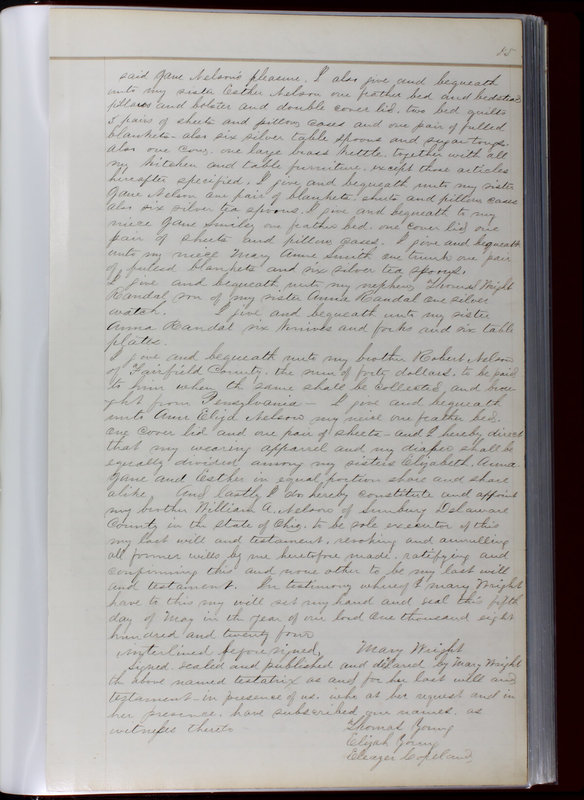 15
said Jane Nelson's pleasure. I also give and bequeath
unto my sister Esther Nelson one feather bed and bedstead
pillows and bolster and double cover lid. two bed quilts
3 pairs of sheets and pillow cases and one pair of fulled
blankets - also six silver table spoons and sugar tongs.
also one cow, one large brass kettle, together with all
my kitchen and table furniture, except those articles
hereafter specified. I give and bequeath unto my sister
Jane Nelson one pair of blankets. sheets and pillow cases
also six silver tea spoons. I give and bequeath to my
niece Jane one feather bed. one cover lid one
pair of sheets and pillow cases. I give and bequeath
unto my niece Mary Anne Smith one trunk one pair
of blankets and six silver tea spoons.
I give and bequeath unto my nephew Thomas Wright
Randal, son of my sister Anna Randal one silver
watch. I give and bequeath unto my sister
Anna Randal six knives and forks and six table
plates.
I give and bequeath unto my brother Robert Nelson
of Fairfield County. the sum of forty dollars. to be paid
to him when th same shall be collected and brou-
ght from Pensylvania - I give and bequeath
unto Ann Eliza Nelson my neice one feather bed.
one cover lid and one pair of sheets - and I hereby direct
that my wearing apparrel and my diaper shall be
equally divided among my sisters Elizabeth, Anna
Jane and Esther in equal portion share and share
alike. And lastly I do hereby constitute and appoint
my brother William A. Nelson of Sunbury Delaware
County in the State of Ohio. to be sole executor of this
my last will and testament. revoking and annulling
all former wills by me heretofore made. ratifying and
confirming this and none other to be my last will
and testament. In testimony whereof I Mary Wright
have to this my will set my hand and seal this fifth
day of May in the year of our lord One thousand eight
hundred and twenty four
Interlined before signed, Mary Wright
Signed. sealed and published and dilared by Mary Wright
th above named testatrix as and for her last will and
testament - in presence of us. who at her request and in
her presence. have subscribed our names. as
witness thereto Thomas Young
Elijah Young
Eleazer Copeland